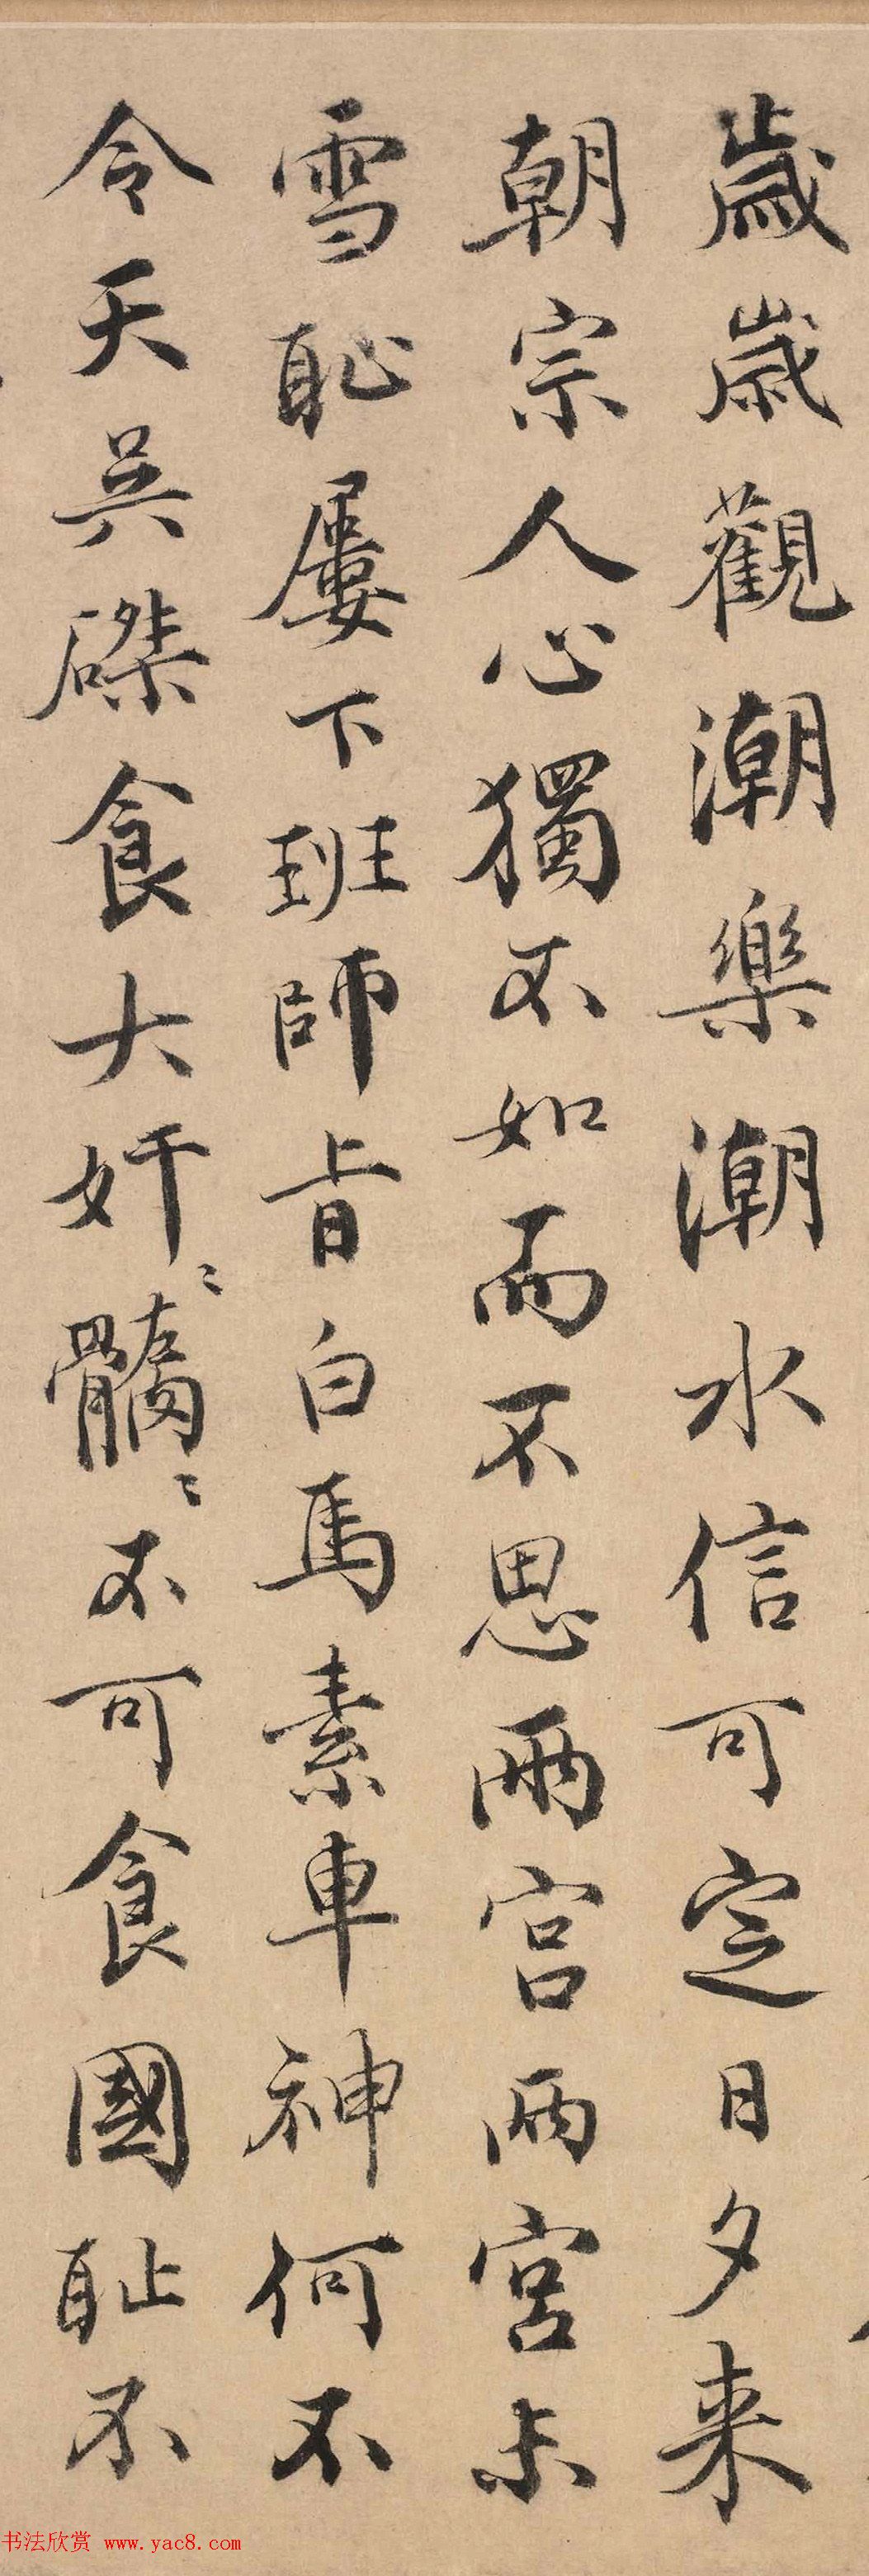 歲歲觀潮樂潮水信可定日夕来
朝宗人心獨不如而不思兩宮兩宮未
雪恥屢下班師旨白馬素車神何不
令天吳磔食大奸〻髒〻不可食國耻不
书法欣赏 www.yac8.com